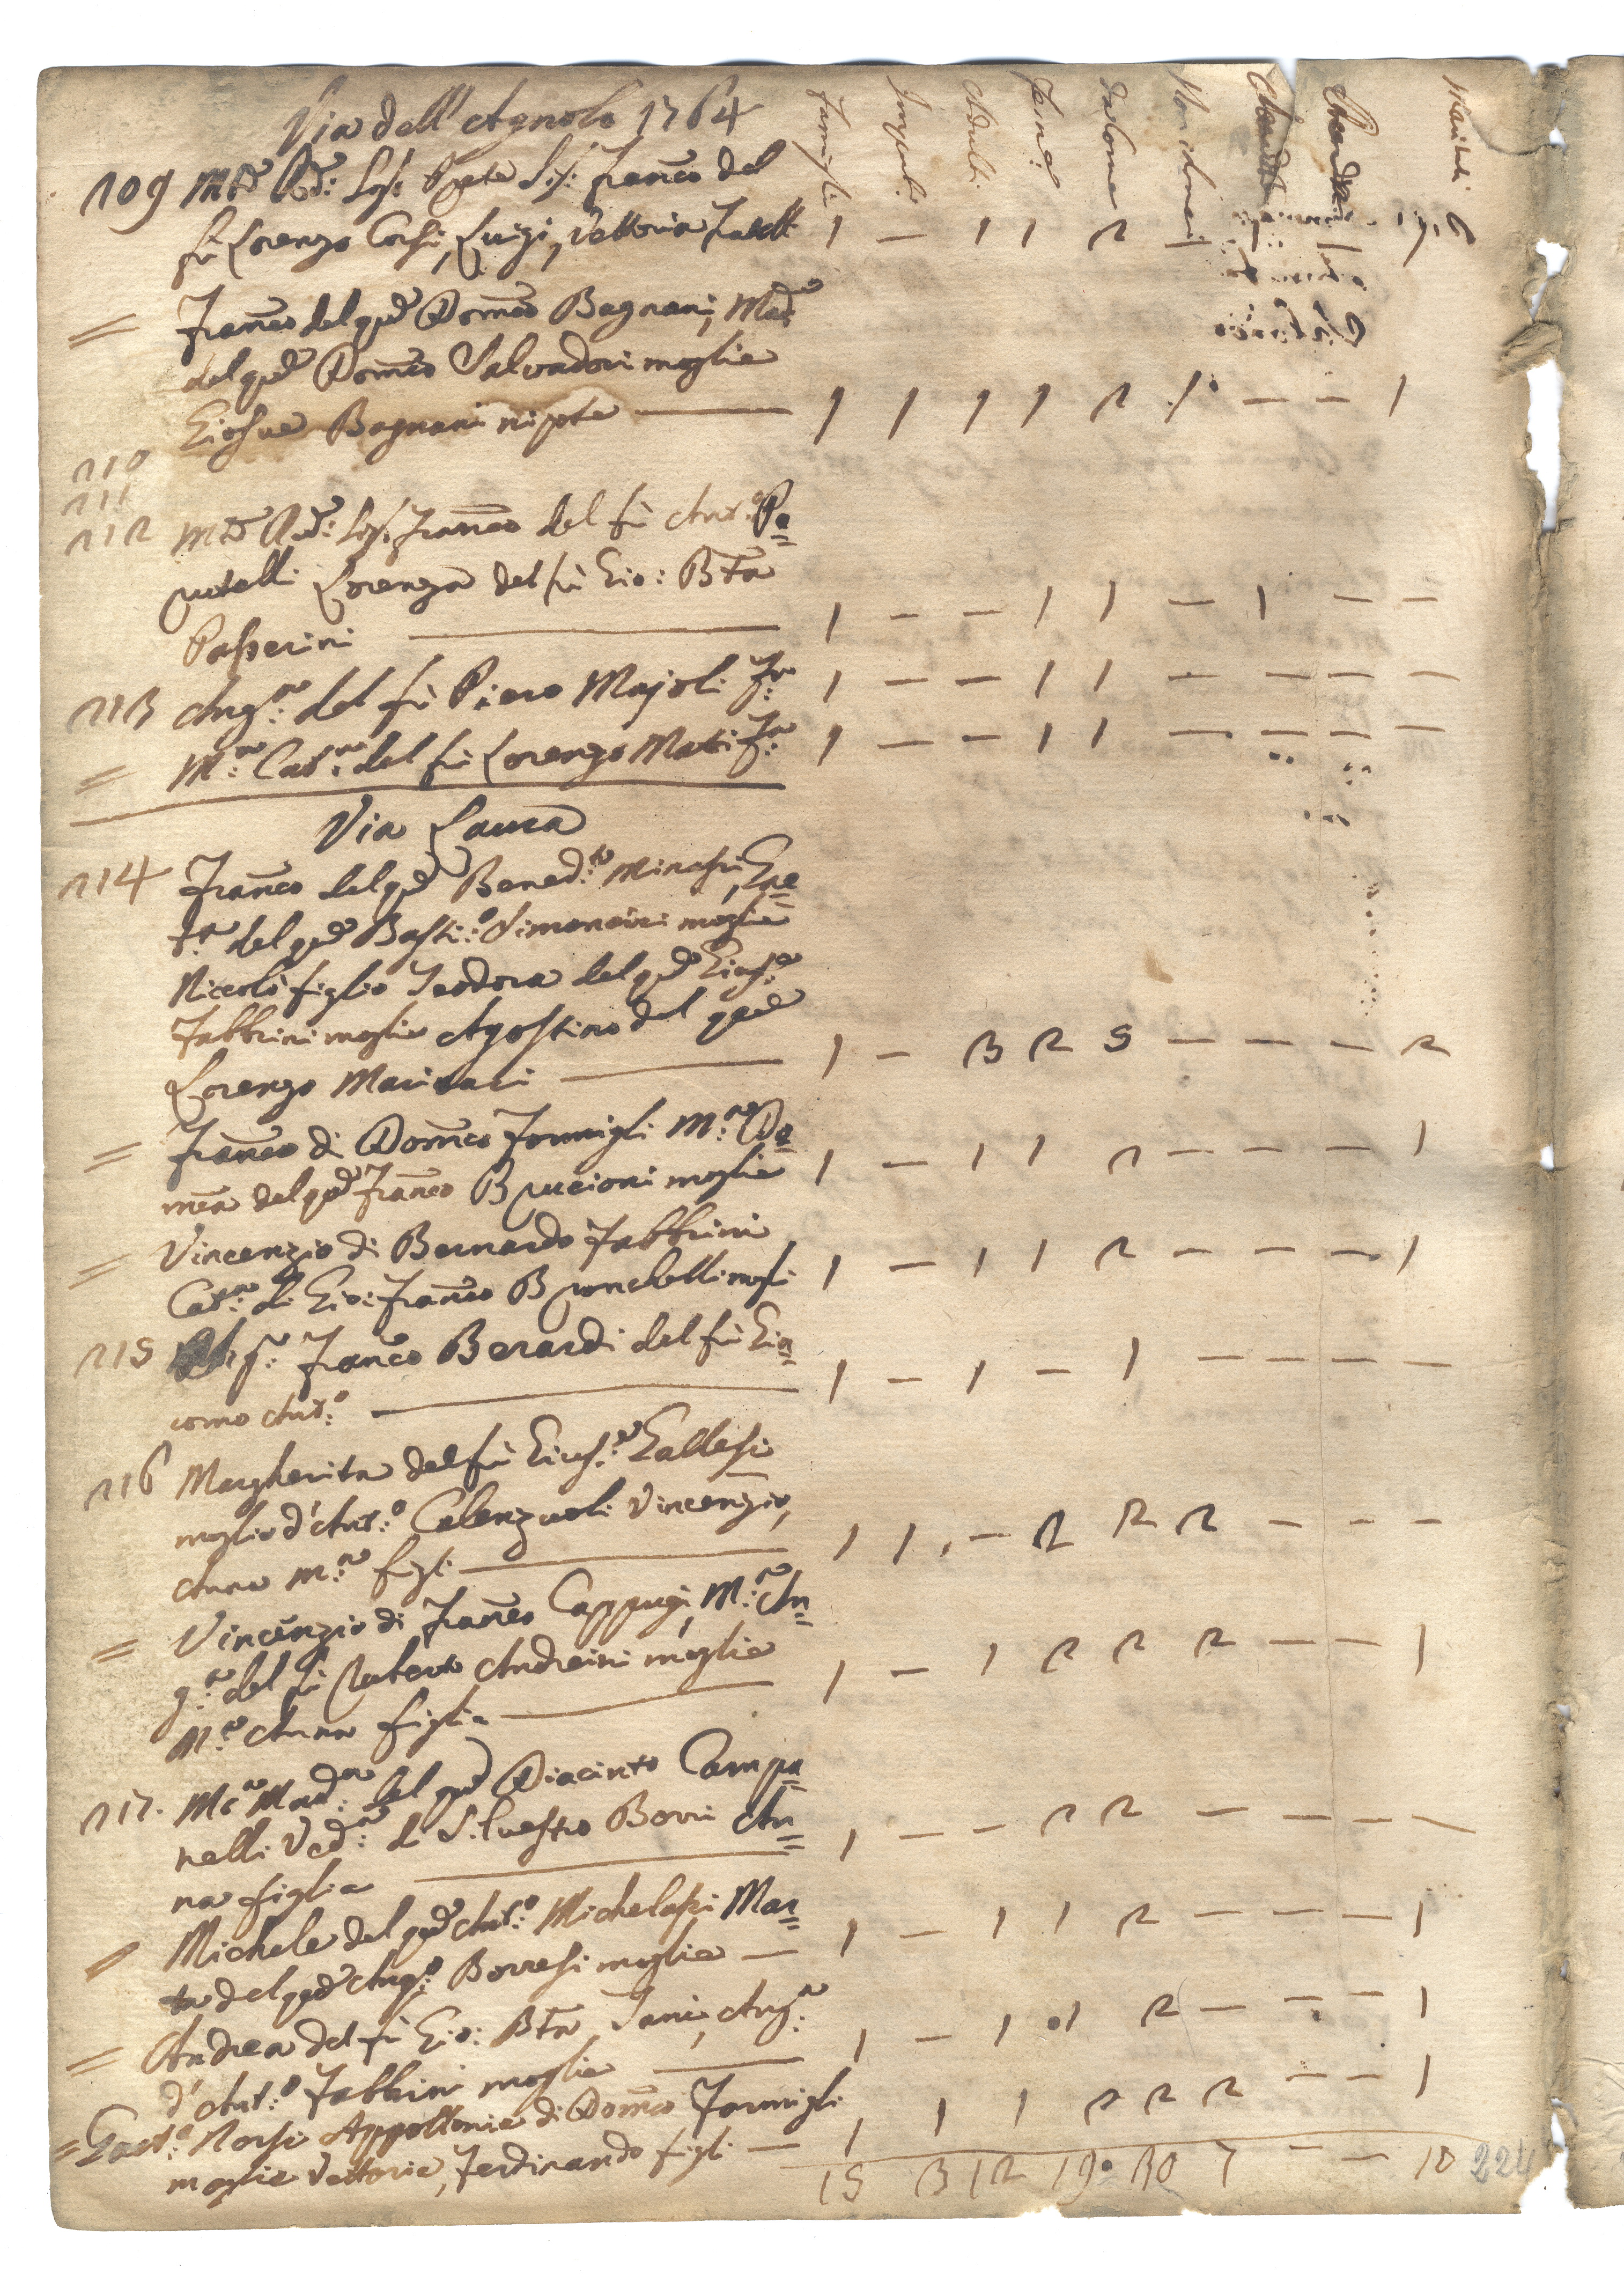 Via dell' Agnolo 1764
Famigl:
Impub:
Adulti
Fem:
da Come
Non Com:
Mariti
109 M.to Rdo: Sig: Prete Sig: Franco del
fù Lorenzo Corsi, Luigi, Vettoria Fratelli 1 — 1 1 2 —
= Franco del qud Domco Bagnani, Mad:
del qud Domco Salvadori moglie
Giosue Bagnani nipote — 1 1 1 1 2 1 — — 1
110
111
112 M.to Rdo: Sig: Franco del fù Ant:o Pe=
rutelli Lorenza del fù Gio: Bta
Passerini — 1 — — 1 1 — 1 — —
113 Ang:a del fù Piero Majoli Fa: 1 — — 1 1 — — — —
= M:a Cat:a del fù Lorenzo Matti Fa: 1 — — 1 1 — — — —
Via Laura
114 Franco del qud Bened:to Minassi, Ene=
t:a del qud Basti:o Simoncini moglie
Niccolò figlio Teodora del qud Gius:e
Fabbrini moglie Agostino del qud
Lorenzo Marinari — 1 — 3 2 5 — — — 2
= Franco di Domco Formigli M:a Do=
mca del qud Franco Bruccioni moglie 1 — 1 1 2 — — — 1
= Vincenzio di Bernardo Fabbrini
Cat:a di Gio: Franco Bronchelli mogli 1 — 1 1 2 — — — 1
115 Sig: Franco Berardi del fù Gia=
como Ant:o — 1 — 1 — 1 — — — —
116 Margherita del fù Gius:e Gallesi
moglie d'Ant:o Calenzuoli Vincenzio,
Anna M:a figli — 1 1 — 2 2 2 — — —
= Vincenzio di Franco Cappugi, M:a An=
g:a del fù Ruberto Andreini moglie
M:a Anna figlia — 1 — 1 2 2 2 — — 1
117. M:a Mad:a del qud Diacinto Campa=
nelli Ved:a di Silvestro Bovvi An=
na figlia — 1 — — 2 2 — — — —
= Michele del qud Ant:o Michelassi Mar=
ta del qud Ang:o Borresi moglie — 1 — 1 1 2 — — — 1
= Andrea del fù Gio: Bta Tani, Ang:a
d'Ant:o Fabbrini moglie — 1 — 1 1 2 — — — 1
= Gaet:o Norsi Appollonia di Domco Formigli
moglie Vettoria, Ferdinando figli — 1 1 1 2 2 2 — — 1
15 3 12 19 30 7 — — 10
224